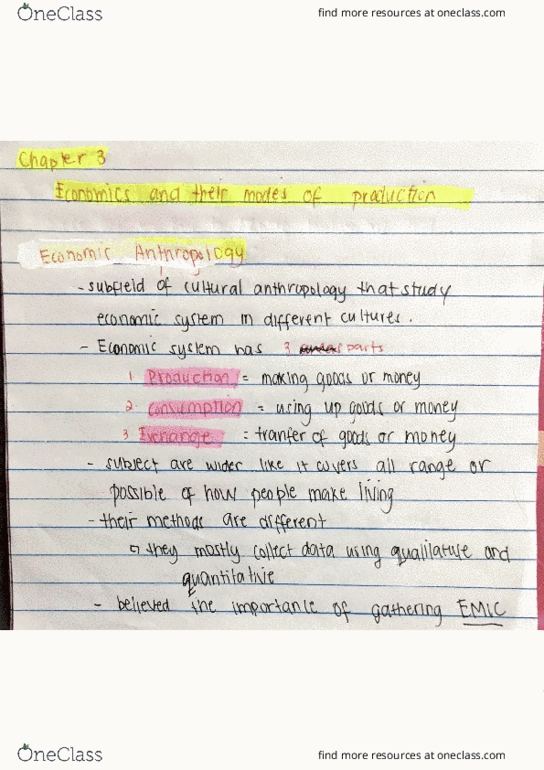 OneClass find more resources at oneclass.com
Chapter 3
Economics and their modes of production
Economic Anthropology
- subfield of cultural anthropology that study
economic system in different cultures.
- Economic system has 3 parts
1. Production = making goods or money
2. consumption = using up goods or money
3 Exchange = tranfer of goods or money
- subject are wider like it covers all range or
possible of how people make living
- their methods are different
↳ they mostly collect data using and
quantitative
- believed the importance of gathering EMIC
OneClass find more resources at oneclass.com